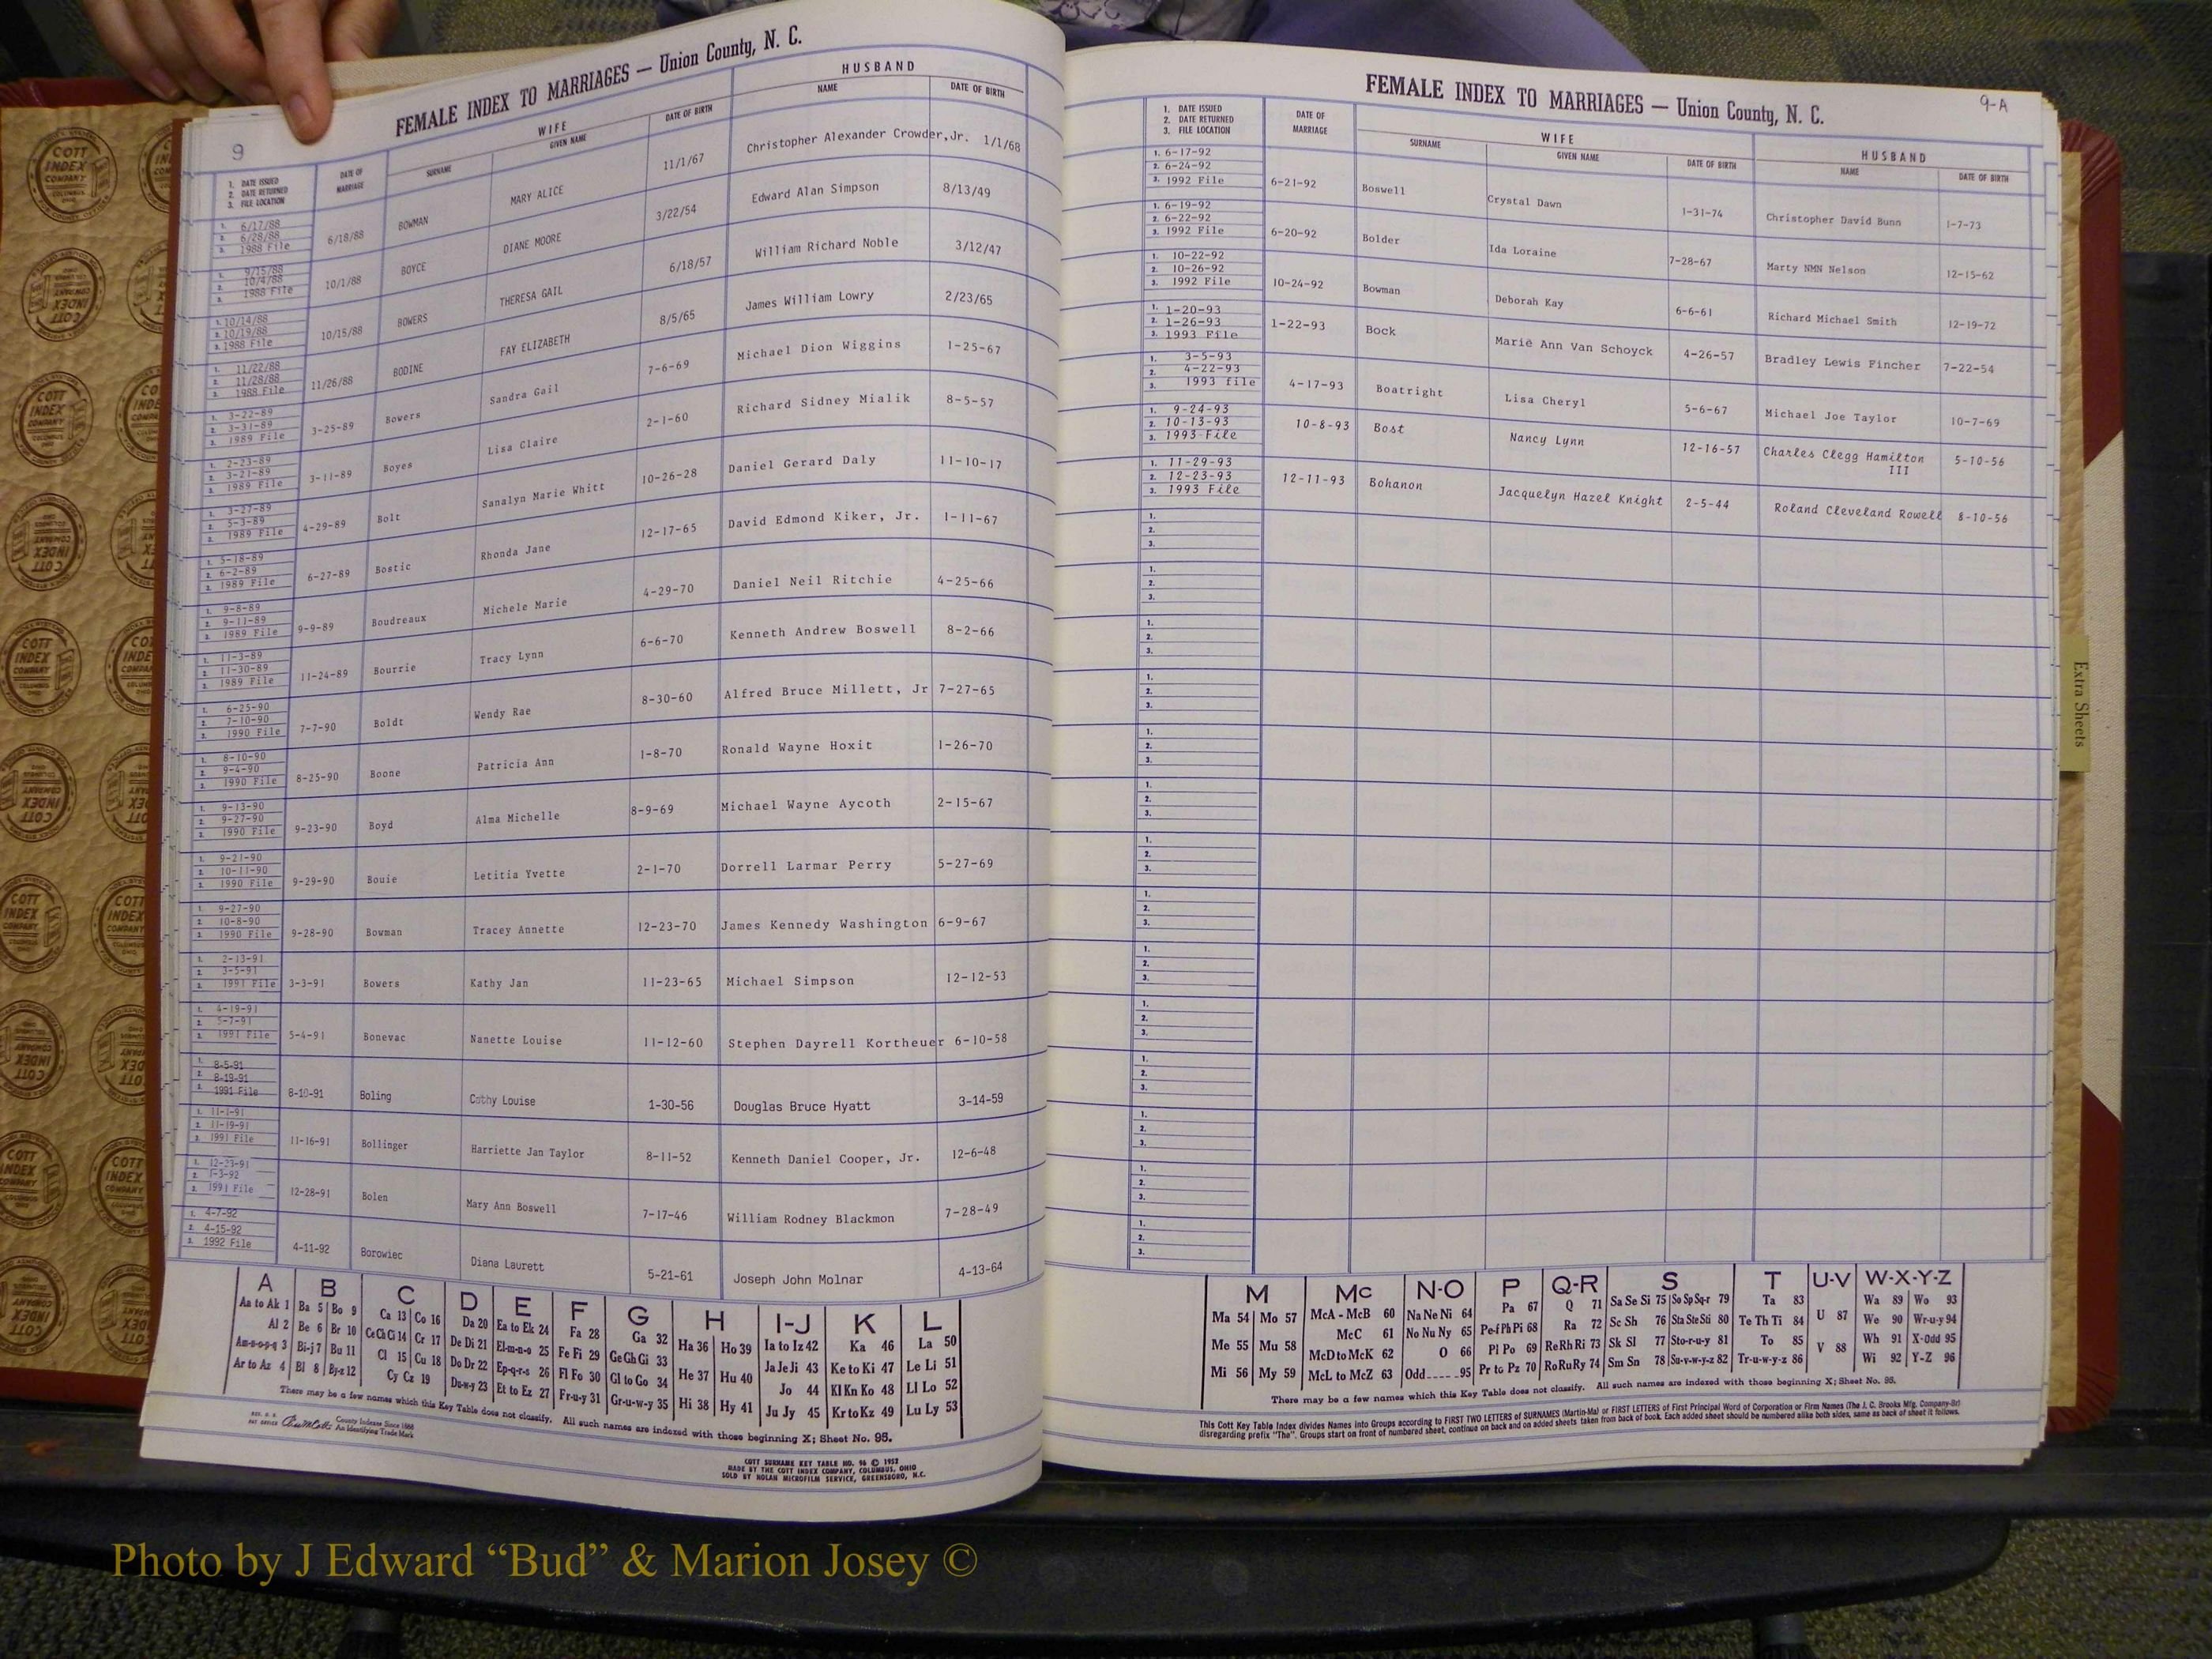 9
FEMALE INDEX TO MARRIAGES — Union County, N. C.
1. DATE ISSUED 2. DATE RETURNED 3. FILE LOCATION
DATE OF MARRIAGE
WIFE
SURNAME GIVEN NAME DATE OF BIRTH
HUSBAND
NAME DATE OF BIRTH
1. 6/17/88 2. 6/28/88 3. 1988 File 6/18/88 BOWMAN MARY ALICE 11/1/67 Christopher Alexander Crowder,Jr. 1/1/68
1. 9/15/88 2. 10/4/88 3. 1988 File 10/1/88 BOYCE DIANE MOORE 3/22/54 Edward Alan Simpson 8/13/49
1. 10/14/88 2. 10/19/88 3. 1988 File 10/15/88 BOWERS THERESA GAIL 6/18/57 William Richard Noble 3/12/47
1. 11/22/88 2. 11/28/88 3. 1988 File 11/26/88 BODINE FAY ELIZABETH 8/5/65 James William Lowry 2/23/65
1. 3-22-89 2. 3-31-89 3. 1989 File 3-25-89 Bowers Sandra Gail 7-6-69 Michael Dion Wiggins 1-25-67
1. 2-23-89 2. 3-21-89 3. 1989 File 3-11-89 Boyes Lisa Claire 2-1-60 Richard Sidney Mialik 8-5-57
1. 3-27-89 2. 5-3-89 3. 1989 File 4-29-89 Bolt Sanalyn Marie Whitt 10-26-28 Daniel Gerard Daly 11-10-17
1. 5-18-89 2. 6-2-89 3. 1989 File 6-27-89 Bostic Rhonda Jane 12-17-65 David Edmond Kiker, Jr. 1-11-67
1. 9-8-89 2. 9-11-89 3. 1989 File 9-9-89 Boudreaux Michele Marie 4-29-70 Daniel Neil Ritchie 4-25-66
1. 11-3-89 2. 11-30-89 3. 1989 File 11-24-89 Bourrie Tracy Lynn 6-6-70 Kenneth Andrew Boswell 8-2-66
1. 6-25-90 2. 7-10-90 3. 1990 File 7-7-90 Boldt Wendy Rae 8-30-60 Alfred Bruce Millett, Jr 7-27-65
1. 8-10-90 2. 9-4-90 3. 1990 File 8-25-90 Boone Patricia Ann 1-8-70 Ronald Wayne Hoxit 1-26-70
1. 9-13-90 2. 9-27-90 3. 1990 File 9-23-90 Boyd Alma Michelle 8-9-69 Michael Wayne Aycoth 2-15-67
1. 9-21-90 2. 10-11-90 3. 1990 File 9-29-90 Bouie Letitia Yvette 2-1-70 Dorrell Larmar Perry 5-27-69
1. 9-27-90 2. 10-8-90 3. 1990 File 9-28-90 Bowman Tracey Annette 12-23-70 James Kennedy Washington 6-9-67
1. 2-13-91 2. 3-5-91 3. 1991 File 3-3-91 Bowers Kathy Jan 11-23-65 Michael Simpson 12-12-53
1. 4-19-91 2. 5-7-91 3. 1991 File 5-4-91 Bonevac Nanette Louise 11-12-60 Stephen Dayrell Kortheuer 6-10-58
1. 8-5-91 2. 8-19-91 3. 1991 File 8-10-91 Boling Cathy Louise 1-30-56 Douglas Bruce Hyatt 3-14-59
1. 11-1-91 2. 11-19-91 3. 1991 File 11-16-91 Bollinger Harriette Jan Taylor 8-11-52 Kenneth Daniel Cooper, Jr. 12-6-48
1. 12-23-91 2. 1-3-92 3. 1991 File 12-28-91 Bolen Mary Ann Boswell 7-17-46 William Rodney Blackmon 7-28-49
1. 4-7-92 2. 4-15-92 3. 1992 File 4-11-92 Borowiec Diana Laurett 5-21-61 Joseph John Molnar 4-13-64
A B C D E F G H I-J K L
Aa to Ak 1 Ba 5 Bo 9 Ca 13 Co 16 Da 20 Ea to Ek 24 Fa 28 Ga 32 Ha 36 Ho 39 Ia to Iz 42 Ka 46 La 50
Al 2 Be 6 Br 10 Ce Ch Ci 14 Cr 17 De Di 21 El-m-n-o 25 Fe Fi 29 Ge Gh Gi 33 He 37 Hu 40 Ja Je Ji 43 Ke to Ki 47 Le Li 51
Am-n-o-p-q 3 Bi-j 7 Bu 11 Cl 15 Cu 18 Do Dr 22 Ep-q-r-s 26 Fl Fo 30 Gl to Go 34 Hi 38 Hy 41 Jo 44 Kl Kn Ko 48 Ll Lo 52
Ar to Az 4 Bl 8 By-z 12 Cy Cz 19 Du-w-y 23 Et to Ez 27 Fr-u-y 31 Gr-u-w-y 35 Ju Jy 45 Kr to Kz 49 Lu Ly 53
There may be a few names which this Key Table does not classify. All such names are indexed with those beginning X; Sheet No. 95.
County Indexes Since 1888
An Identifying Trade Mark
COTT SURNAME KEY TABLE NO. 96 © 1952
MADE BY THE COTT INDEX COMPANY, COLUMBUS, OHIO
SOLD BY NOLAN MICROFILM SERVICE, GREENSBORO, N.C.
9-A
FEMALE INDEX TO MARRIAGES — Union County, N. C.
1. DATE ISSUED 2. DATE RETURNED 3. FILE LOCATION
DATE OF MARRIAGE
WIFE
SURNAME GIVEN NAME DATE OF BIRTH
HUSBAND
NAME DATE OF BIRTH
1. 6-17-92 2. 6-24-92 3. 1992 File 6-21-92 Boswell Crystal Dawn 1-31-74 Christopher David Bunn 1-7-73
1. 6-19-92 2. 6-22-92 3. 1992 File 6-20-92 Bolder Ida Loraine 7-28-67 Marty NMN Nelson 12-15-62
1. 10-22-92 2. 10-26-92 3. 1992 File 10-24-92 Bowman Deborah Kay 6-6-61 Richard Michael Smith 12-19-72
1. 1-20-93 2. 1-26-93 3. 1993 File 1-22-93 Bock Marie Ann Van Schoyck 4-26-57 Bradley Lewis Fincher 7-22-54
1. 3-5-93 2. 4-22-93 3. 1993 file 4-17-93 Boatright Lisa Cheryl 5-6-67 Michael Joe Taylor 10-7-69
1. 9-24-93 2. 10-13-93 3. 1993 File 10-8-93 Bost Nancy Lynn 12-16-57 Charles Clegg Hamilton III 5-10-56
1. 11-29-93 2. 12-23-93 3. 1993 File 12-11-93 Bohanon Jacquelyn Hazel Knight 2-5-44 Roland Cleveland Rowell 8-10-56
1. 2. 3.
1. 2. 3.
1. 2. 3.
1. 2. 3.
1. 2. 3.
1. 2. 3.
1. 2. 3.
1. 2. 3.
1. 2. 3.
1. 2. 3.
1. 2. 3.
1. 2. 3.
1. 2. 3.
1. 2. 3.
Extra Sheets
M Mc N-O P Q-R S T U-V W-X-Y-Z
Ma 54 Mo 57 McA - McB 60 Na Ne Ni 64 Pa 67 Q 71 Sa Se Si 75 So Sp Sq-r 79 Ta 83 U 87 Wa 89 Wo 93
Me 55 Mu 58 McC 61 No Nu Ny 65 Pe-f Ph Pi 68 Ra 72 Sc Sh 76 Sta Ste Sti 80 Te Th Ti 84 V 88 We 90 Wr-u-y 94
Mi 56 My 59 McD to McK 62 O 66 Pl Po 69 Re Rh Ri 73 Sk Sl 77 Sto-r-u-y 81 To 85 Wh 91 X-Odd 95
McL to McZ 63 Odd 95 Pr to Pz 70 Ro Ru Ry 74 Sm Sn 78 Su-v-w-y-z 82 Tr-u-w-y-z 86 Wi 92 Y-Z 96
There may be a few names which this Key Table does not classify. All such names are indexed with those beginning X; Sheet No. 95.
This Cott Key Table Index divides Names into Groups according to FIRST TWO LETTERS of SURNAMES (Martin-Ma) or FIRST LETTERS of First Principal Word of Corporation or Firm Names (The J. C. Brooks Mfg. Company-Br)
disregarding prefix "The". Groups start on front of numbered sheet, continue on back and on added sheets taken from back of book. Each added sheet should be numbered alike both sides, same as back of sheet it follows.
COTT INDEX COMPANY COLUMBUS OHIO
Photo by J Edward “Bud” & Marion Josey ©